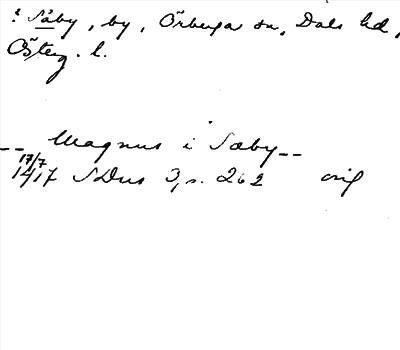 ? Säby, by, Örberga sn, Dals hd,
Österg. l.
-- Magnus i Sæby --
17/7
1417 SDns 3, s. 262 orig